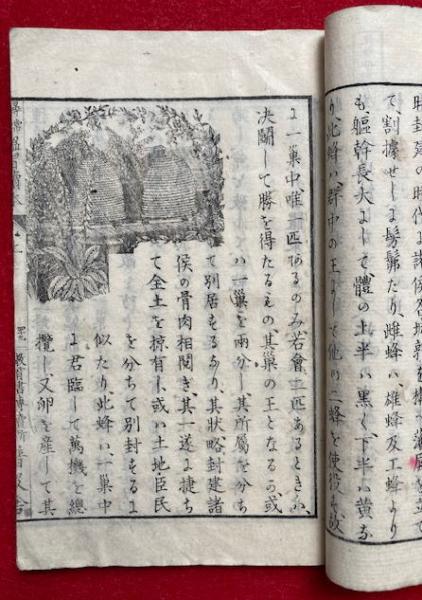 時封建の時代よ諸侯各城郭を構
て、割據せしよ髣髴たり、雌蜂ハ、雄蜂及工蜂より
も軀幹長大よして、體の上半ハ黒く下半ハ黄な
り、此蜂ハ、群中の王よして他の二蜂を使役も、故
よ一巣中唯一匹あるのみ若會二匹あるときハ、
决鬭して勝を得たるもの、其巣の王となるゝ或
ハ一巣を兩分し其所屬を分ち
て別居もるあり、其状略封建諸
侯の骨肉相鬩ぎ、其一遂よ捷ち
て全土を掠有し或ハ土地臣民
を分ちて別封もるよ
似たり、此蜂ハ一巣中
よ君臨して萬機を總
攬し又卵を産して其